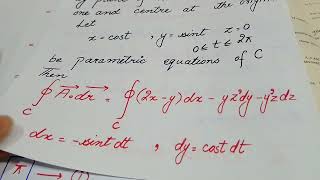 one and centre at the origin
Let
x = cost , y = sint z = 0
0 ≤ t ≤ 2π
be parametric equations of C
Then
∮ A⃗ . dr⃗ = ∮ (2x-y)dx - yz²dy - y²zdz
C C
dx = -sint dt , dy = cost dt
π → ①